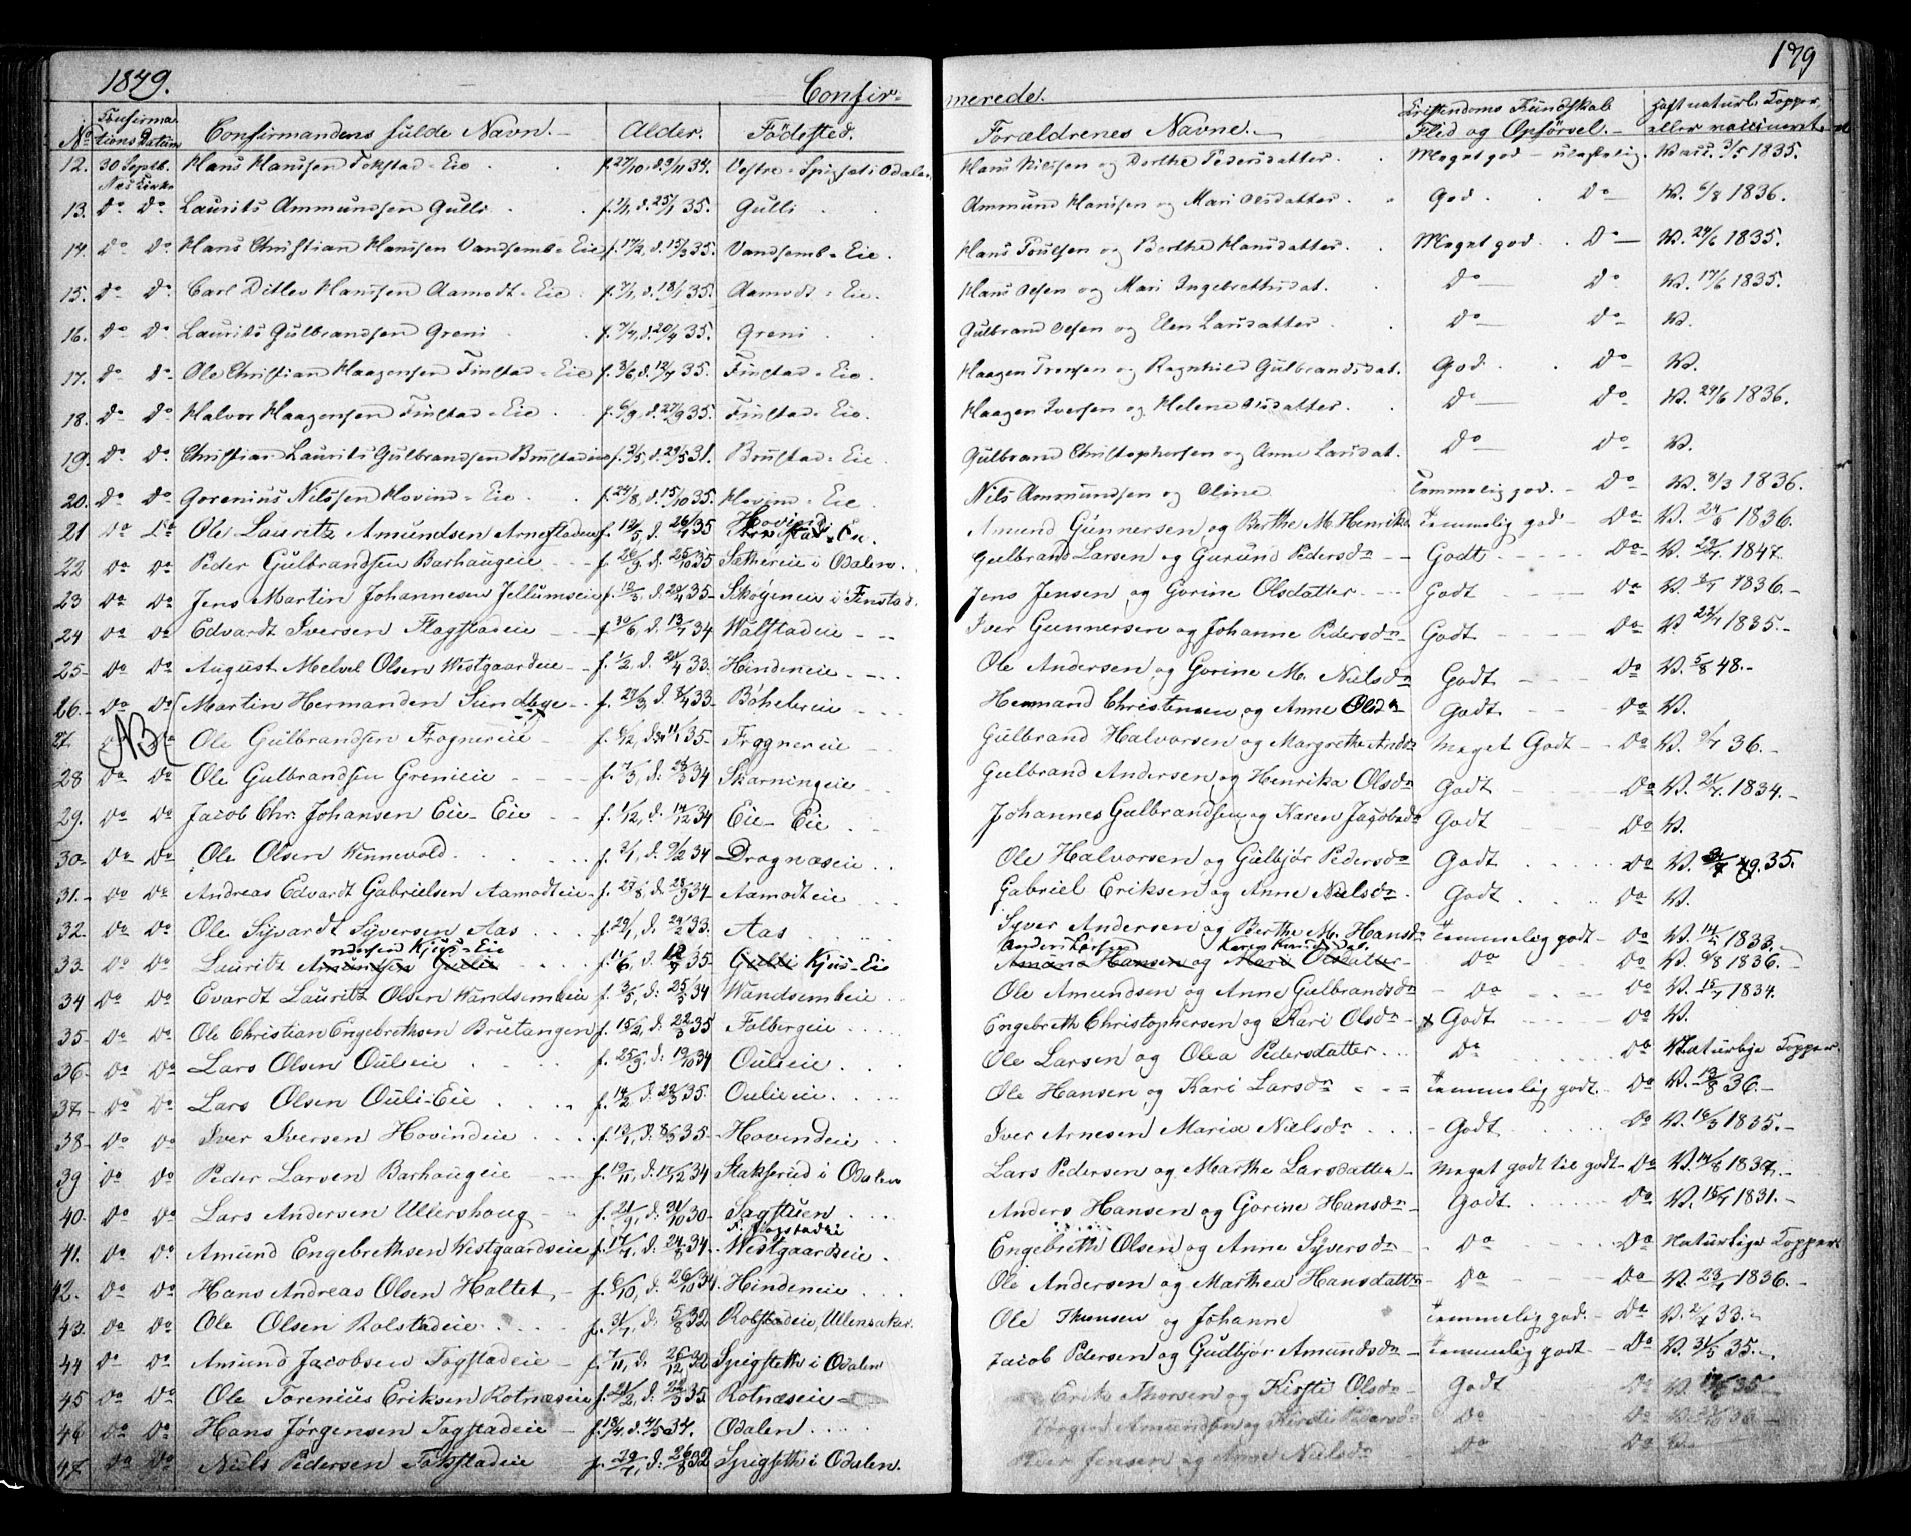 1849.
Confir-
merede.
179
No
Confirmations Datum
Confirmandens fulde Navn.
Alder.
Fødested.
Forældrenes Navne.
Christendoms Kundskab Flid og Opførsel.
haft naturl. Kopper eller vaccineret
12. 30 Septb. Næs Kirke Hans Hansen Tokstad-Eie f. 27/10, d. 9/11 34. Vestre-Spigset i Odalen Hans Nilsen og Dorthe Pedersdatter Meget god - ulastelig. Vacc. 3/5 1835.
13. Do Do Laurits Ammundsen Gulli d. 25/1 35. Gulli Ammund Hansen og Mari Olsdatter God Do V. 6/8 1836.
14. Do Do Hans Christian Hansen Vandsemb-Eie f. 17/2, d. 15/3 35. Vandsemb-Eie. Hans Poulsen og Berthe Hansdatter Meget god Do V. 24/6 1835.
15. Do Do Carl Ditlev Hansen Aamodt-Eie f. 7/1, d. 18/1 35. Aamodt-Eie. Hans Olsen og Mari Ingebretsdat. Do Do V. 17/6 1835.
16. Do Do Laurits Gulbrandsen Greni f. 7/4, d. 20/4 35. Greni Gulbrand Olsen og Elen Larsdatter Do Do V.
17. Do Do Ole Christian Haagensen Finstad-Eie f. 3/6, d. 12/7 35. Finstad-Eie. Haagen Iversen og Ragnhild Gulbrandsdat. God Do V.
18. Do Do Halvor Haagensen Finstad-Eie f. 6/9, d. 27/9 35. Finstad-Eie. Haagen Iversen og Helene Olsdatter Do Do V. 24/6 1836.
19. Do Do Christian Laurits Gulbrandsen Brustadeie d. 29/5 31. Brustad-Eie. Gulbrand Christophersen og Anne Larsdat. Do Do V.
20. Do Do Gorenius Nilssen Hovind-Eie f. 24/8, d. 15/10 35. Hovind-Eie Nils Ammundsen og Oline Temmelig god. Do V. 8/3 1836.
21 Do Do Ole Lauritz Amundsen Arnestadeie d. 26/4 35 Hovind Eie. Amund Gunnersen og Berthe M. Henriks. Temmelig god Do V. 24/6 1836.
22 Do Do Peder Gulbrandsen Barhaugeie f. 20/9 d. 25/10 35 Sæthereie i Odalen. Gulbrand Larsen og Gurund Pedersdr Godt Do V. 29/7 1847.
23 Do Do Jens Martin Johannesen Jellumseie f. 12/3 35 Skøyeneie i Finstad. Jens Jensen og Gorine Olsdatter Godt Do V. 1836.
24 Do Do Edvardt Iversen Flagstadeie f. 10/6, d. 13/7 34 Walstadeie Iver Gunnersen og Johanne Pedersdr Godt Do V. 22/7 1835.
25 Do Do August Melvel Olsen Westgaardeie f. 1/2, d. 21/4 33. Hindeneie. Ole Andersen og Gorine M. Nielsdr Godt Do V. 5/8 48.
26. Do Do Martin Hermanden Sundbye f. 27/3 d. 8/4 33. Bøhlereie Hermand Christensen og Anne Olsdr Godt Do V.
27. NB Ole Gulbrandsen Frognereie f. 6/2, 35 Frognereie Gulbrand Halvorsen og Margrethe Andr Meget Godt Do V. 9/7 36.
28 Do Do Ole Gulbrandsen Grenieie f. 7/3, d. 28/3 34 Skarningeie Gulbrand Andersen og Henrika Olsdr Godt Do V. 1834.
29. Do Do Jacob Chr. Johansen Eie-Eie f. 1/12, d. 14/12 34 Eie-Eie Johannes Gulbrandsen og Karen Jacobsdr Godt Do V.
30. Do Do Ole Olsen Kinnevold f. 2/1, d. 9/2 34 Dragnæseie Ole Halvorsen og Gulbjør Pedersdr Godt Do V. 35.
31. Do Do Andreas Edvardt Gabrielsen Aamodteie f. 27/8, d. 28/9 34 Aamodteie Gabriel Eriksen og Anne Nielsdr Godt Do V.
32. Do Do Ole Syvardt Syversen Aas f. 20/1, d. 24/2 33. Aas Syver Andersen og Berthe M. Hansdr Temmelig godt Do V. 1833.
33. Do Do Lauritz Amundsen Gulieie ndersen Kjus-Eie f. 11/6, d. 12/7 35 Gulli Kjus-Eie Amund Hansen og Mari Olsdatter Anders Larsen Karen Knudsdat. Do Do V. 9/8 1836.
34 Do Do Evardt Lauritz Olsen Wandsembeie f. 3/5, d. 25/5 34 Wandsembeie Ole Amundsen og Anne Gulbrandsdr Do Do V. 15/7 1834.
35. Do Do Ole Christian Engebrethsen Brutangen f. 15/2, d. 22/3 35 Folbergeie Engebreth Christophersen og Kari Olsdr x Godt Do V.
36 Do Do Lars Olsen Oulieie f. 25/9 d. 19/10 34 Oulieie Ole Larsen og Olea Pedersdatter Do Do Naturlige Kopper.
37 Do Do Lars Olsen Ouli-Eie f. 14/2 d. 22/3 35. Oulieie. Ole Hansen og Kari Larsdr Temmelig godt Do V. 13/8 36.
38 Do Do Iver Iversen Hovindeie d. 8/3 35 Hovindeie Iver Arnesen Maria Nielsdr Godt Do V. 16/3 1835.
39 Do Do Peder Larsen Barhaugeie f. 19/11, d. 17/12 34 Stakserud i Odalen Lars Pedersen og Marthe Larsdatter Meget godt til godt Do V. 14/8 1837.
40. Do Do Lars Andersen Ullershoug f. 21/9, d. 31/10 30 Sagstuen Anders Hansen og Gorine Hansdr Godt Do V. 15/7 1831.
41. Do Do Amund Engebrethsen Westgaardseie f. 17/7, d. 24/8 34 Westgaardseie Flagstadeie Engebreth Olsen og Anne Syversdr Do Do Naturlige Kopper
42. Do Do Hans Andreas Olsen Holtet f. 6/10, d. 26/10 34 Hindeneie Ole Andersen og Marthea Hansdattr Do Do V. 23/7 1836.
43. Do Do Ole Olsen Rolstadeie f. 31/7, d. 5/8 32 Rolstadeie, Ullensaker. Ole Thomsen og Johanne Temmelig god. Do V. 2/7 33.
44 Do Do Amund Jacobsen Togstadeie f. 7/11, d. 26/12 32 Spigseth i Odalen Jacob Pedersen og Gudbjør Amundsdr Temmelig godt Do V. 31/5 35.
45 Do Do Ole Torenius Eriksen Rotnæseie f. 21/2, d. 22/3 35. Rotnæseie Erik Thorsen og Kirsti Olsdr Godt Do V. 35
46 Do Do Hans Jørgensen Togstadeie f. 18/4 d. 4/5 34. Odalen Jørgen Amundsen og Kirsti Pedersdr Do Do V. 36
47 Do Do Niels Pedersen Tokstadeie f. 29/7, d. 26/8 32 Spigseth i Odalen. Peder Jensen og Anne Nielsdr Do Do V.